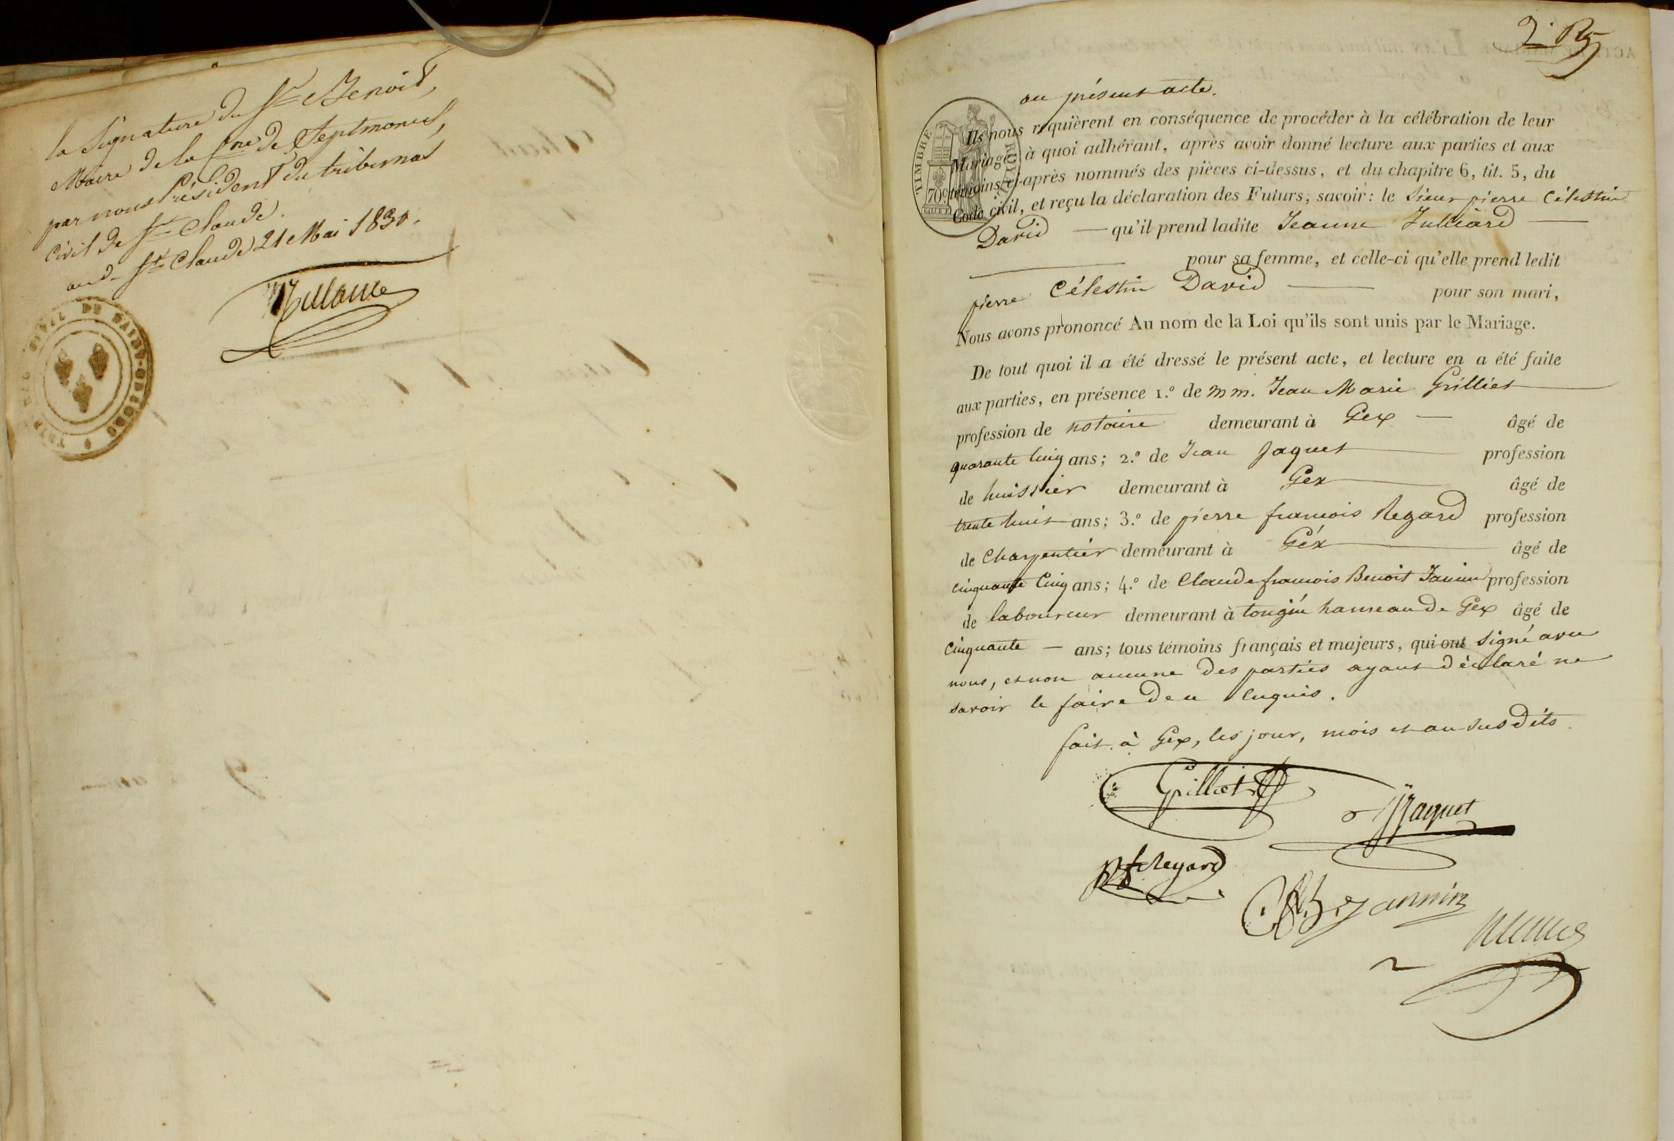 la Signature du Sr Benoit,
Maire de la Cne de Septmoncel,
par nous Président du tribunal
Civil de St Claude.
St Claude 21 Mai 1830.
2.
au présent acte.
TIMBRE ROYAL
70c
Ils nous requièrent en conséquence de procéder à la célébration de leur
Mariage, à quoi adhérant, après avoir donné lecture aux parties et aux
témoins ci-après nommés des pièces ci-dessus, et du chapitre 6, tit. 5, du
Code civil, et reçu la déclaration des Futurs, savoir: le Sieur pierre Célestin
David — qu'il prend ladite Jeanne Julliard —
pour sa femme, et celle-ci qu'elle prend ledit
pierre Célestin David — pour son mari,
Nous avons prononcé Au nom de la Loi qu'ils sont unis par le Mariage.
De tout quoi il a été dressé le présent acte, et lecture en a été faite
aux parties, en présence 1.° de mm. Jean Marie Grilliet
profession de notaire demeurant à Gex — âgé de
quarante Cinq ans; 2.° de Jean Jaquet profession
de huissier demeurant à Gex âgé de
trente huit ans; 3.° de pierre francois Regard profession
de Charpentier demeurant à Géx âgé de
cinquante Cinq ans; 4.° de Claude francois Benoit Jannin profession
de laboureur demeurant à tougin hameau de Gex âgé de
Cinquante — ans; tous témoins français et majeurs, qui ont signé avec
nous, et non aucune des parties ayant déclaré ne
savoir le faire de ce Enquis.
fait à Gex, les jour, mois et an susdits
Grilliet
J Jaquet
Regard
C. f. B. Jannin